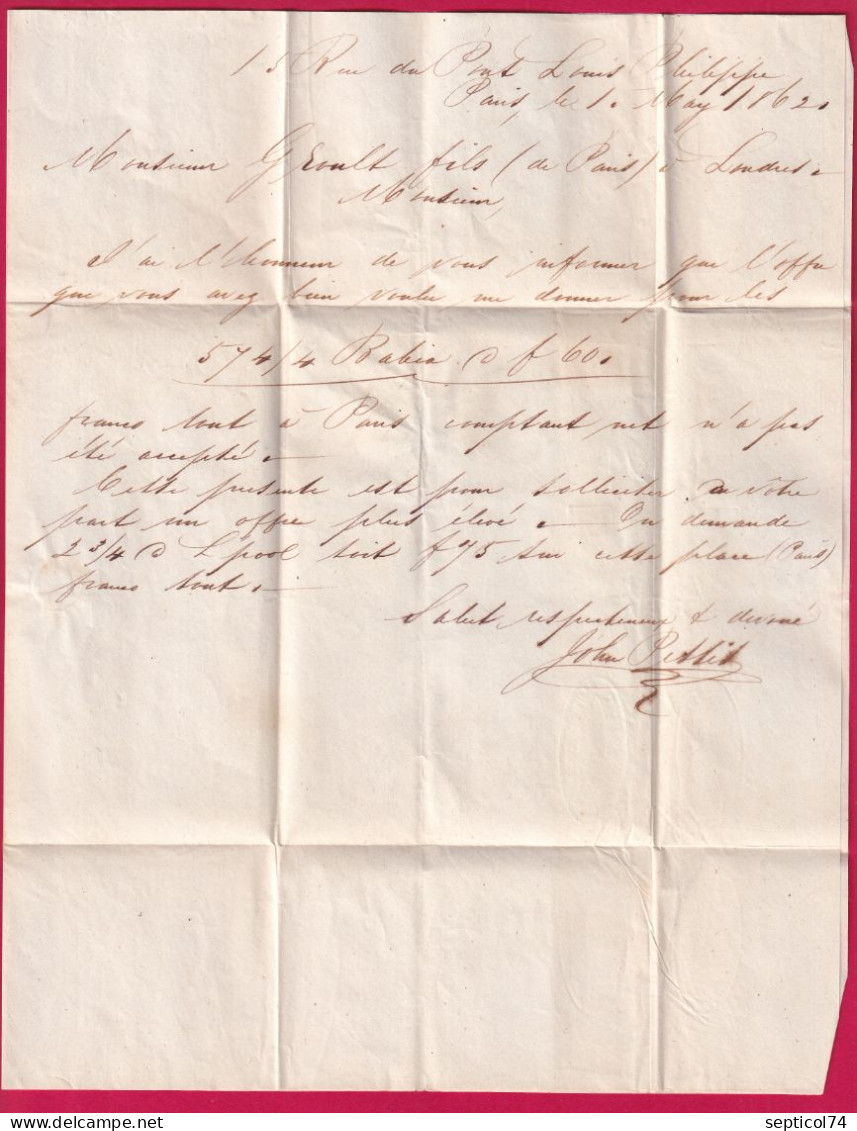 15 Rue du Pont Louis Philippe
Paris, le 1. May 1862.
Monsieur Geoult fils (de Paris) à Londres.
Monsieur,
J'ai l'honneur de vous informer que l'offre
que vous avez bien voulu me donner pour les
574/4 Bahia @ f 60.
francs tout à Paris comptant net n'a pas
été accepté.
Cette présente est pour solliciter de votre
part un offre plus élevé. — On demande
2 3/4 @ Lpool soit f 75 sur cette place (Paris)
francs tout.
Salut respectueux & dévoué
John Pettit
septicol74